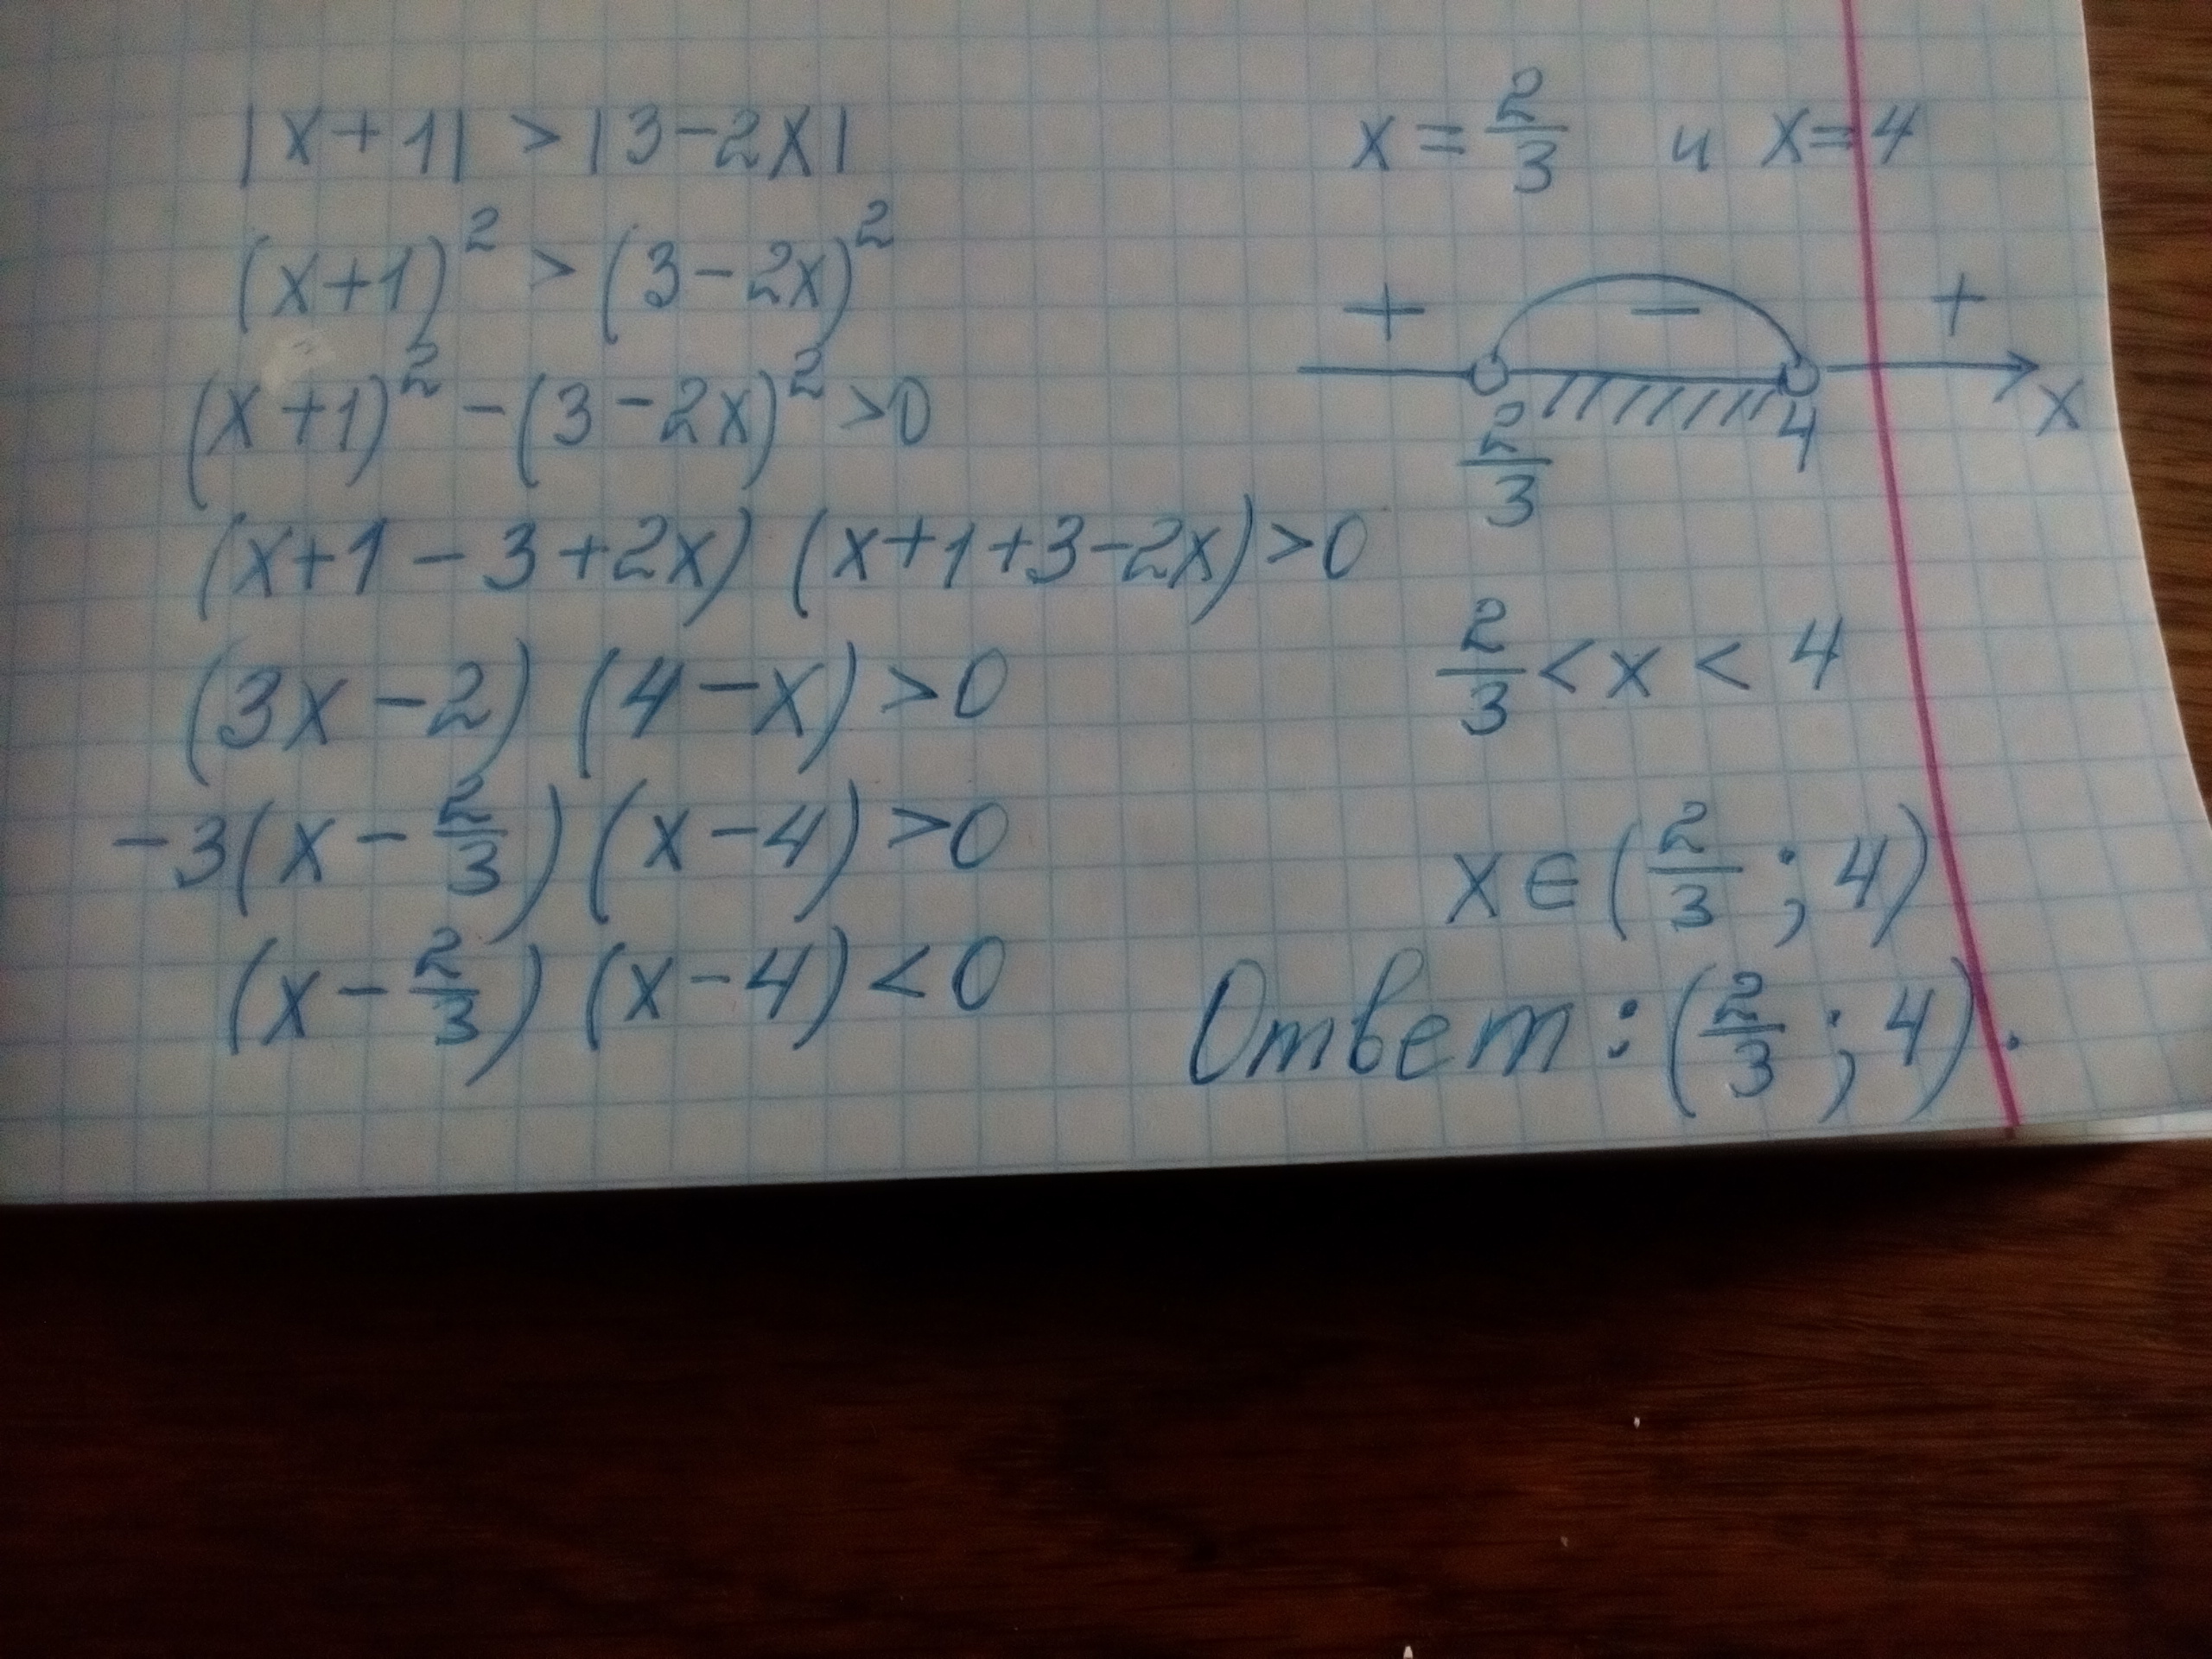 |x+1| > |3-2x|
(x+1)² > (3-2x)²
(x+1)² - (3-2x)² >0
(x+1-3+2x) (x+1+3-2x)>0
(3x-2) (4-x)>0
-3(x-2/3)(x-4)>0
(x-2/3) (x-4)<0
x=2/3 и x=4
+ - +
2/3 4 x
2/3<x<4
x∈(2/3;4)
Ответ:(2/3;4).